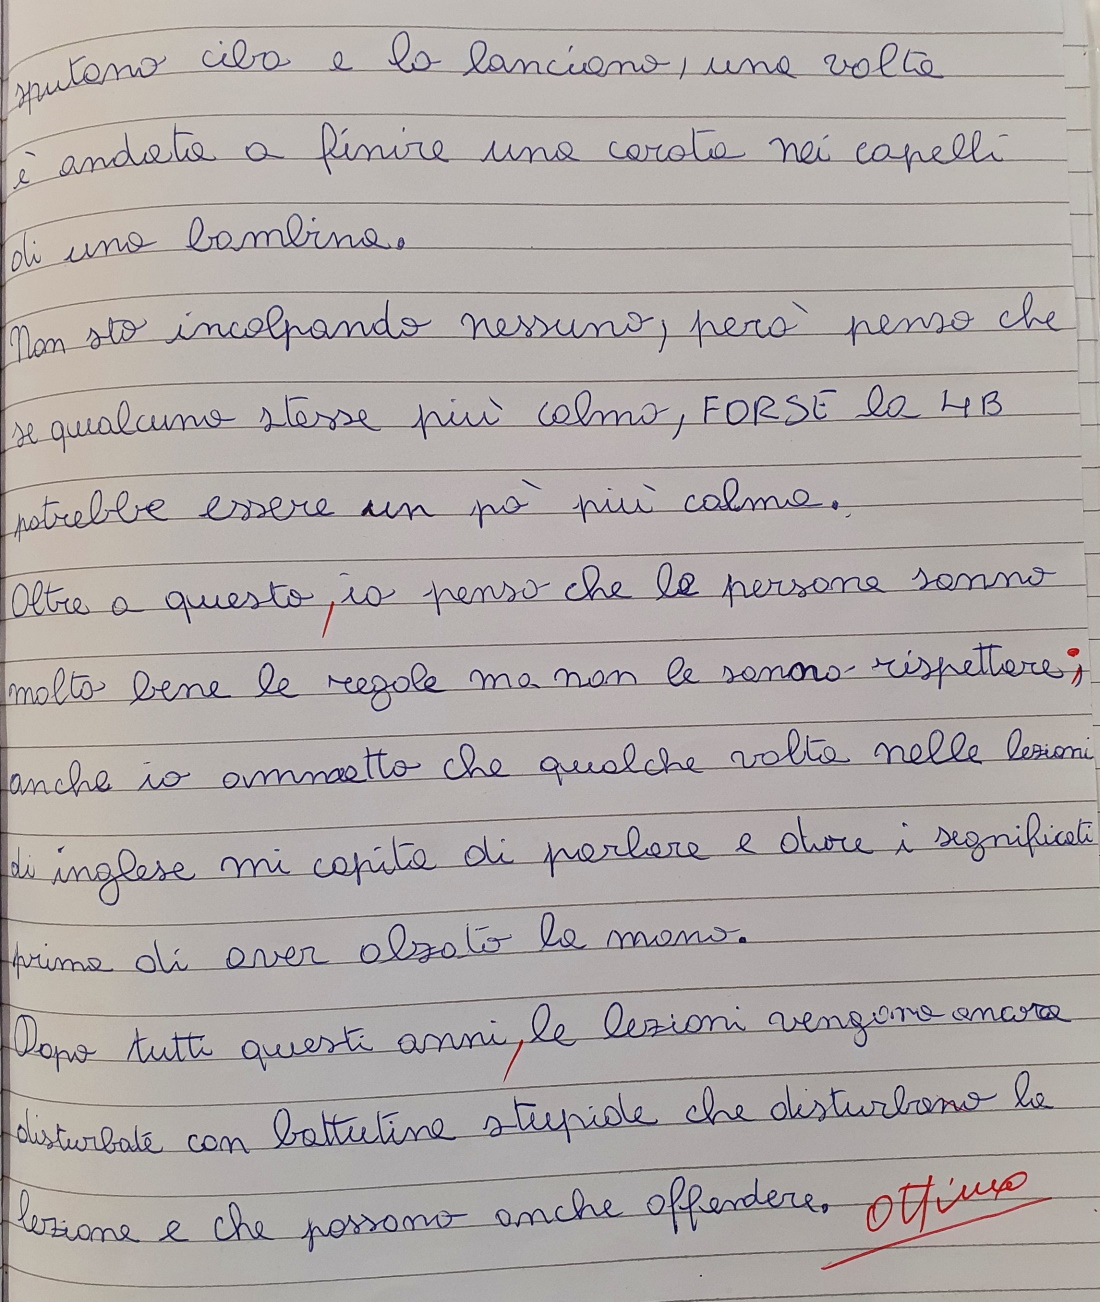 sputano cibo e lo lanciano, una volta
è andata a finire una carota nei capelli
di una bambina.
Non sto incolpando nessuno, però penso che
se qualcuno stesse più calmo, FORSE la 4B
potrebbe essere un pò più calma.
Oltre a questo, io penso che le persone sanno
molto bene le regole ma non le sanno rispettare;
anche io ammetto che qualche volta nelle lezioni
di inglese mi capita di parlare e dire i significati
prima di aver alzato la mano.
Dopo tutti questi anni, le lezioni vengono ancora
disturbate con battutine stupide che disturbano la
lezione e che possono anche offendere. Ottimo